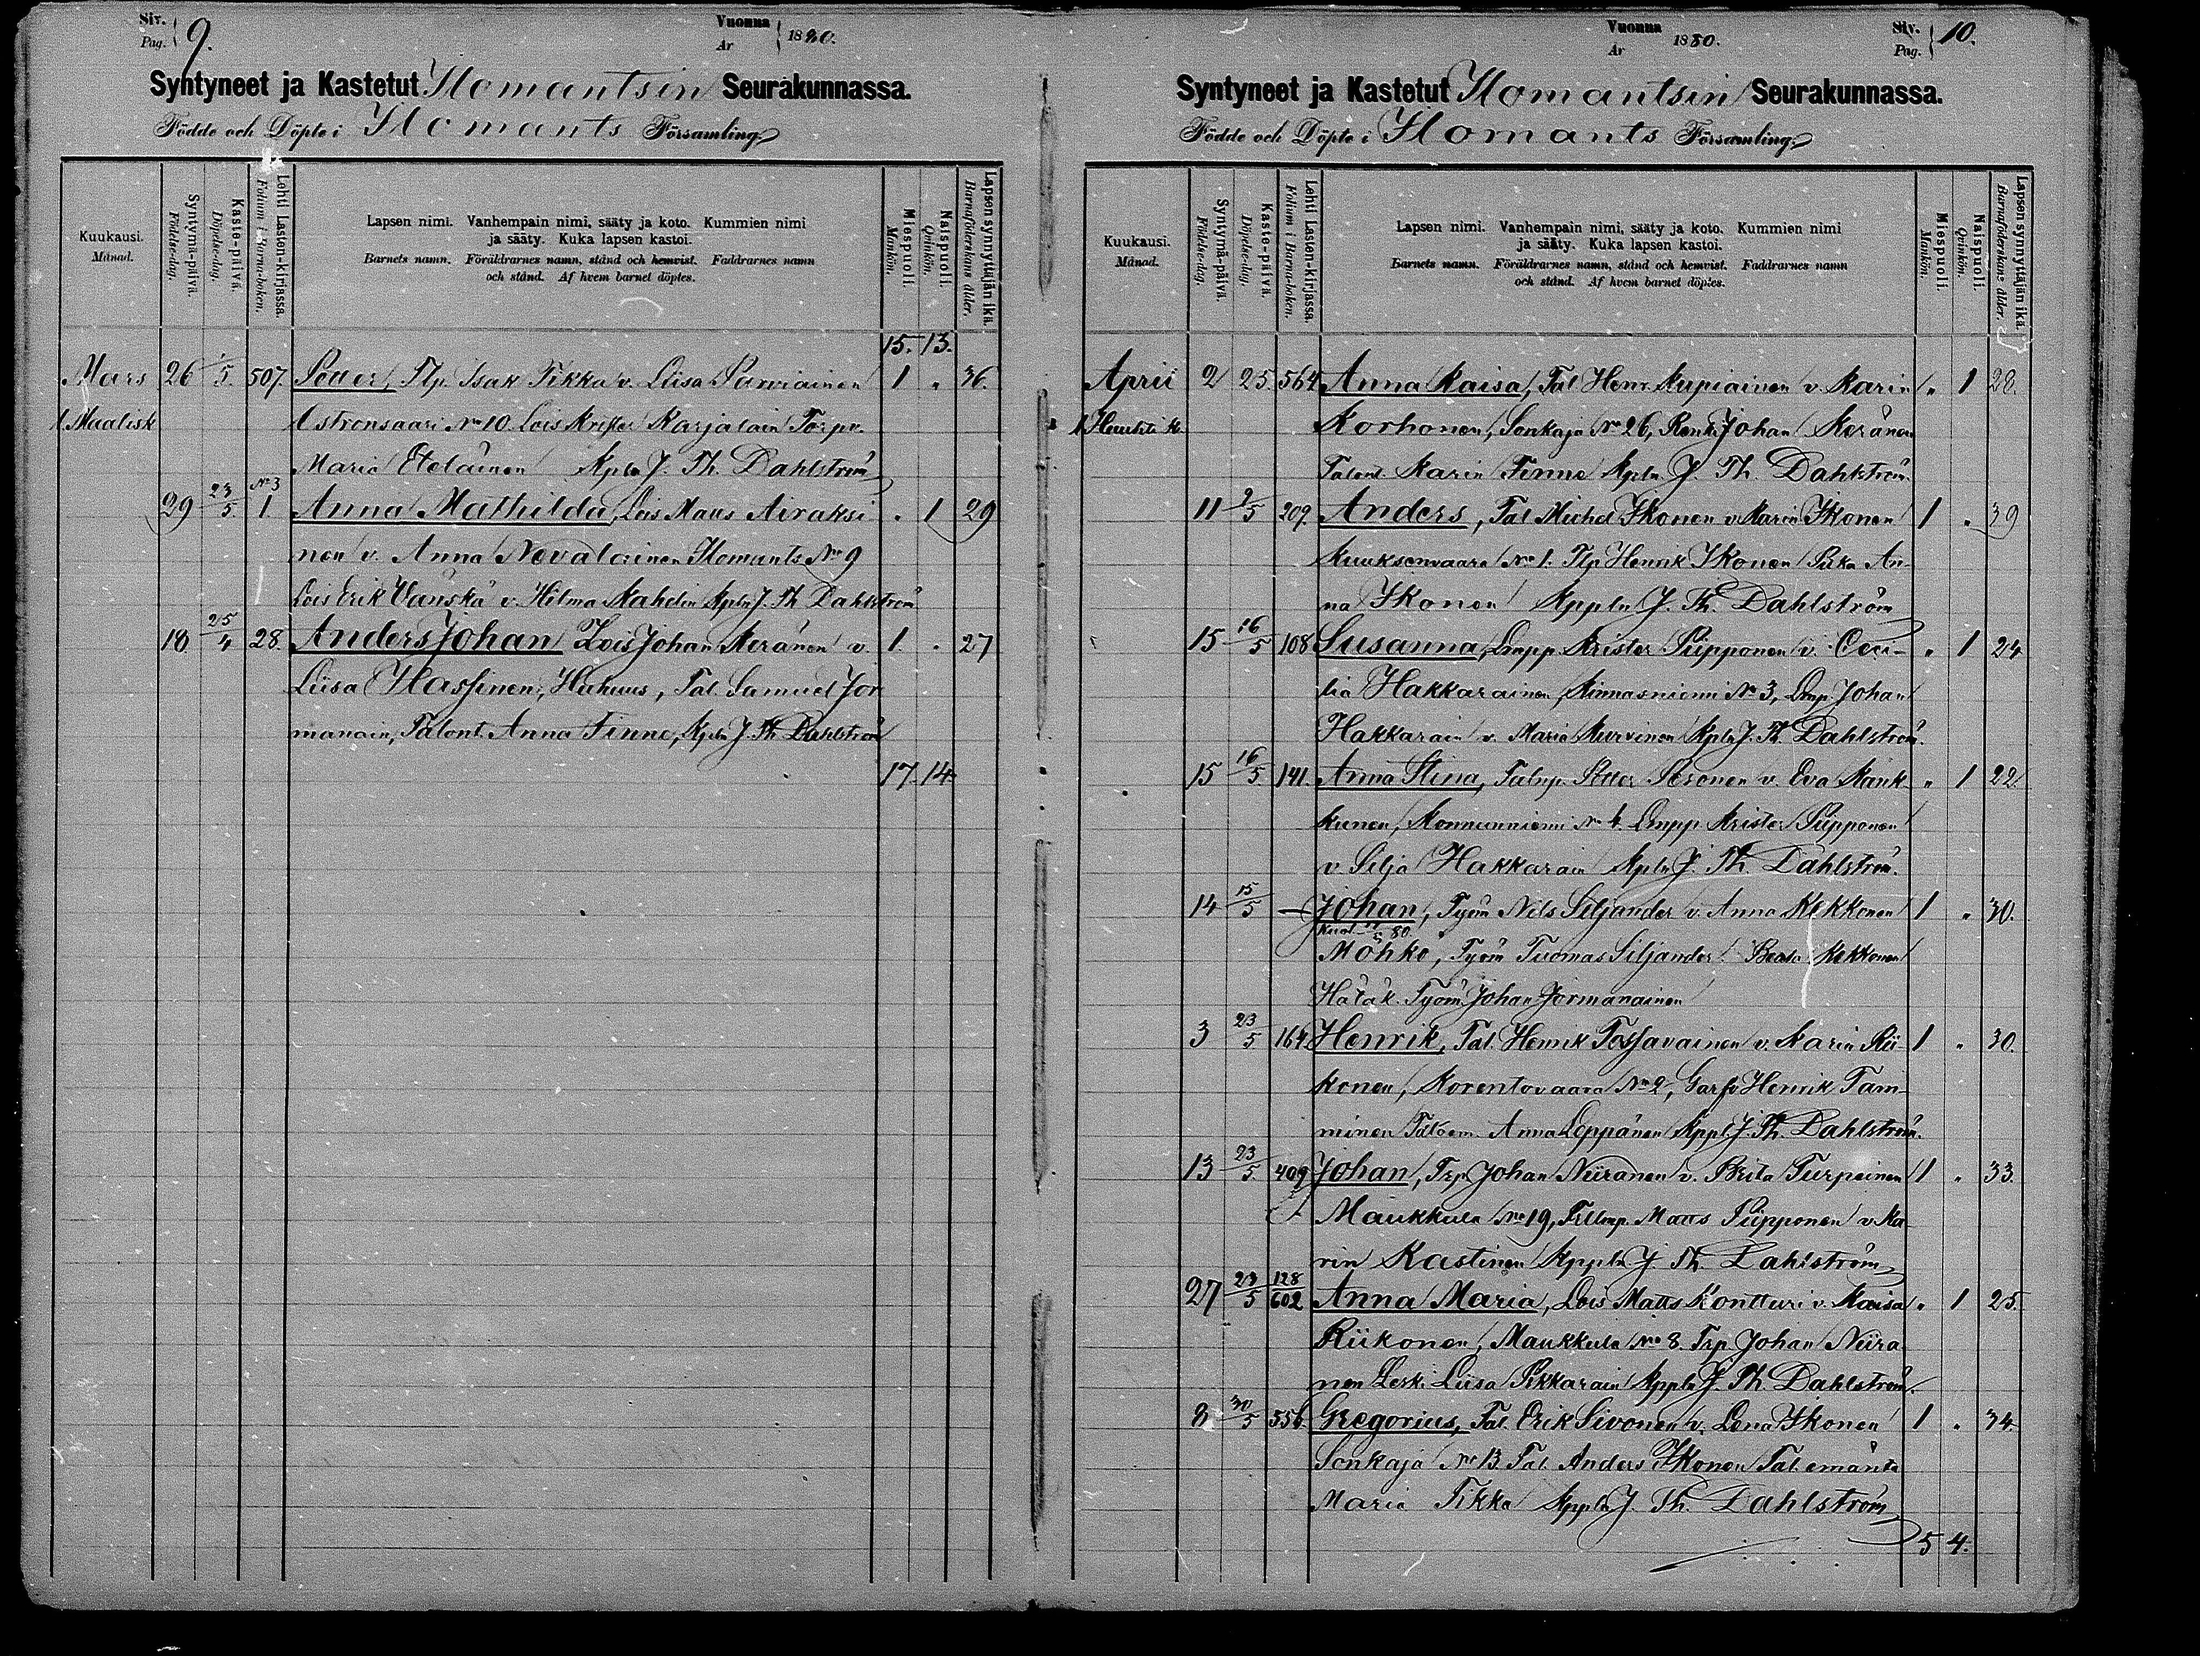 Siv. Pag. 9. Vuonna År 1880.
Syntyneet ja Kastetut Ilomantsin Seurakunnassa.
Födde och Döpte i Ilomants Församling
Kuukausi. Månad.
Syntymä-päivä. Födelse-dag.
Kaste-päivä. Döpelse-dag.
Lehti Lasten-kirjassa. Folium i Barna-boken.
Lapsen nimi. Vanhempain nimi, sääty ja koto. Kummien nimi
ja sääty. Kuka lapsen kastoi.
Barnets namn. Föräldrarnes namn, stånd och hemvist. Faddrarnes namn
och stånd. Af hvem barnet döptes.
Miespuoli. Mankön.
Naispuoli. Qvinkön.
Lapsen synnyttäjän ikä. Barnaföderskans ålder.
15. 13.
Mars 26 1/5. 507. Petter, Tlp. Isak Tikka v. Liisa Parviainen 1 „ 36.
Maalisk No 10. Lois Krister Karjalain Torpv.
Maria Eteläinen Kpln J. Th. Dahlström
29 23/5 No 3 1 Anna Mathilda, Lois Maus Airaksi 1 29
nen v. Anna Nevalainen Ilomants No 9
Lois Erik Vänskä v. Hilma Kahelin Kpln J. Th. Dahlström
18 25/4 28. Anders Johan Lois Johan Keränen v. 1. 27
Liisa Hassinen, Huhuus, Tal. Samuel Jor
manain, Talont. Anna Finne, Kpln J. Th. Dahlström
17 14
Vuonna År 1880. Siv. Pag. 10.
Syntyneet ja Kastetut Ilomantsin Seurakunnassa.
Födde och Döpte i Ilomants Församling.
Kuukausi. Månad.
Syntymä-päivä. Födelse-dag.
Kaste-päivä. Döpelse-dag.
Lehti Lasten-kirjassa. Folium i Barna-boken.
Lapsen nimi. Vanhempain nimi, sääty ja koto. Kummien nimi
ja sääty. Kuka lapsen kastoi.
Barnets namn. Föräldrarnes namn, stånd och hemvist. Faddrarnes namn
och stånd. Af hvem barnet döptes.
Miespuoli. Mankön.
Naispuoli. Qvinkön.
Lapsen synnyttäjän ikä. Barnaföderskans ålder.
April 2 25. 564 Anna Kaisa, Tal Henr. Kupiainen v. Karin „ 1 28.
Huhti k. Korhonen, Sonkaja No 26, Renki Johan Keränen
Talont. Karin Finne Kpln J. Th. Dahlström.
11 9/5 209. Anders, Tal Michel Ikonen v. Karin Ikonen 1 „ 39
Kuuksenvaara No 1. Tlp Henrik Ikonen Piika An-
na Ikonen Kppln J. Th. Dahlström
15 16/5 108 Susanna, Lmpp Krister Piipponen v. Ceci- „ 1 24
lia Hakkarainen, Kinnasniemi No 3, Lmp Johan
Hakkarain v. Maria Kurvinen Kpln J. Th. Dahlström.
15 16/5 141. Anna Stina, Petter Ikonen v. Eva Mänk- „ 1 22
kunen, Konnunniemi No 4. Lmpp Krister Piipponen
v. Silja Hakkarain Kpln J. Th. Dahlström.
14 15/5 — Johan, Työm Nils Siljander v. Anna Kekkonen 1 „ 30.
Kuol. 80.
Möhkö, Työm Tuomas Siljander Beata Kekkonen
Hätäk. Työm. Johan Jormanainen
3 23/5 164 Henrik, Tal. Henrik Tossavainen v. Karin Rii 1 „ 30.
konen, Korentovaara No 2, Garfv Henrik Tam-
minen Taloem. Anna Leppänen Kppl J. Th. Dahlström.
13 23/5. 409 Johan, Trp Johan Niiranen v. Brita Turpeinen 1 „ 33.
Maukkula No 19, Matts Piipponen v. Ka
rin Kastinen Kppln J. Th. Dahlström
27 23/5 128/602 Anna Maria, Lois Matts Kontturi v. Kaisa „ 1 25.
Riikonen, Maukkula No 8. Trp Johan Niira
nen Leski Liisa Pikkarain Kppln J. Th. Dahlström.
8 30/5 556. Gregorius, Tal. Erik Sivonen v. Lena Ikonen 1 „ 34.
Sonkaja No 13 Tal Anders Ikonen Tal. emänta
Maria Tikka Kppln J. Th. Dahlström
5 4.